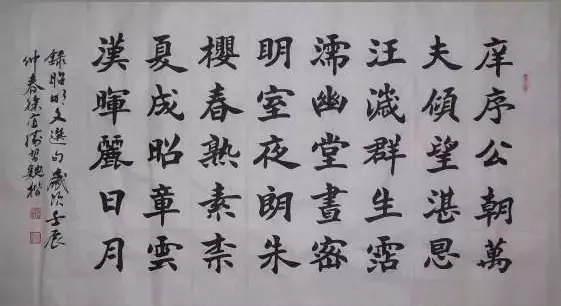 庠序公朝萬
夫傾望湛恩
汪濊群生霑
濡幽堂晝密
明室夜朗朱
櫻春熟素柰
夏成昭章雲
漢暉麗日月
錄昭明文選句歲次壬辰
仲春徐習魏楷